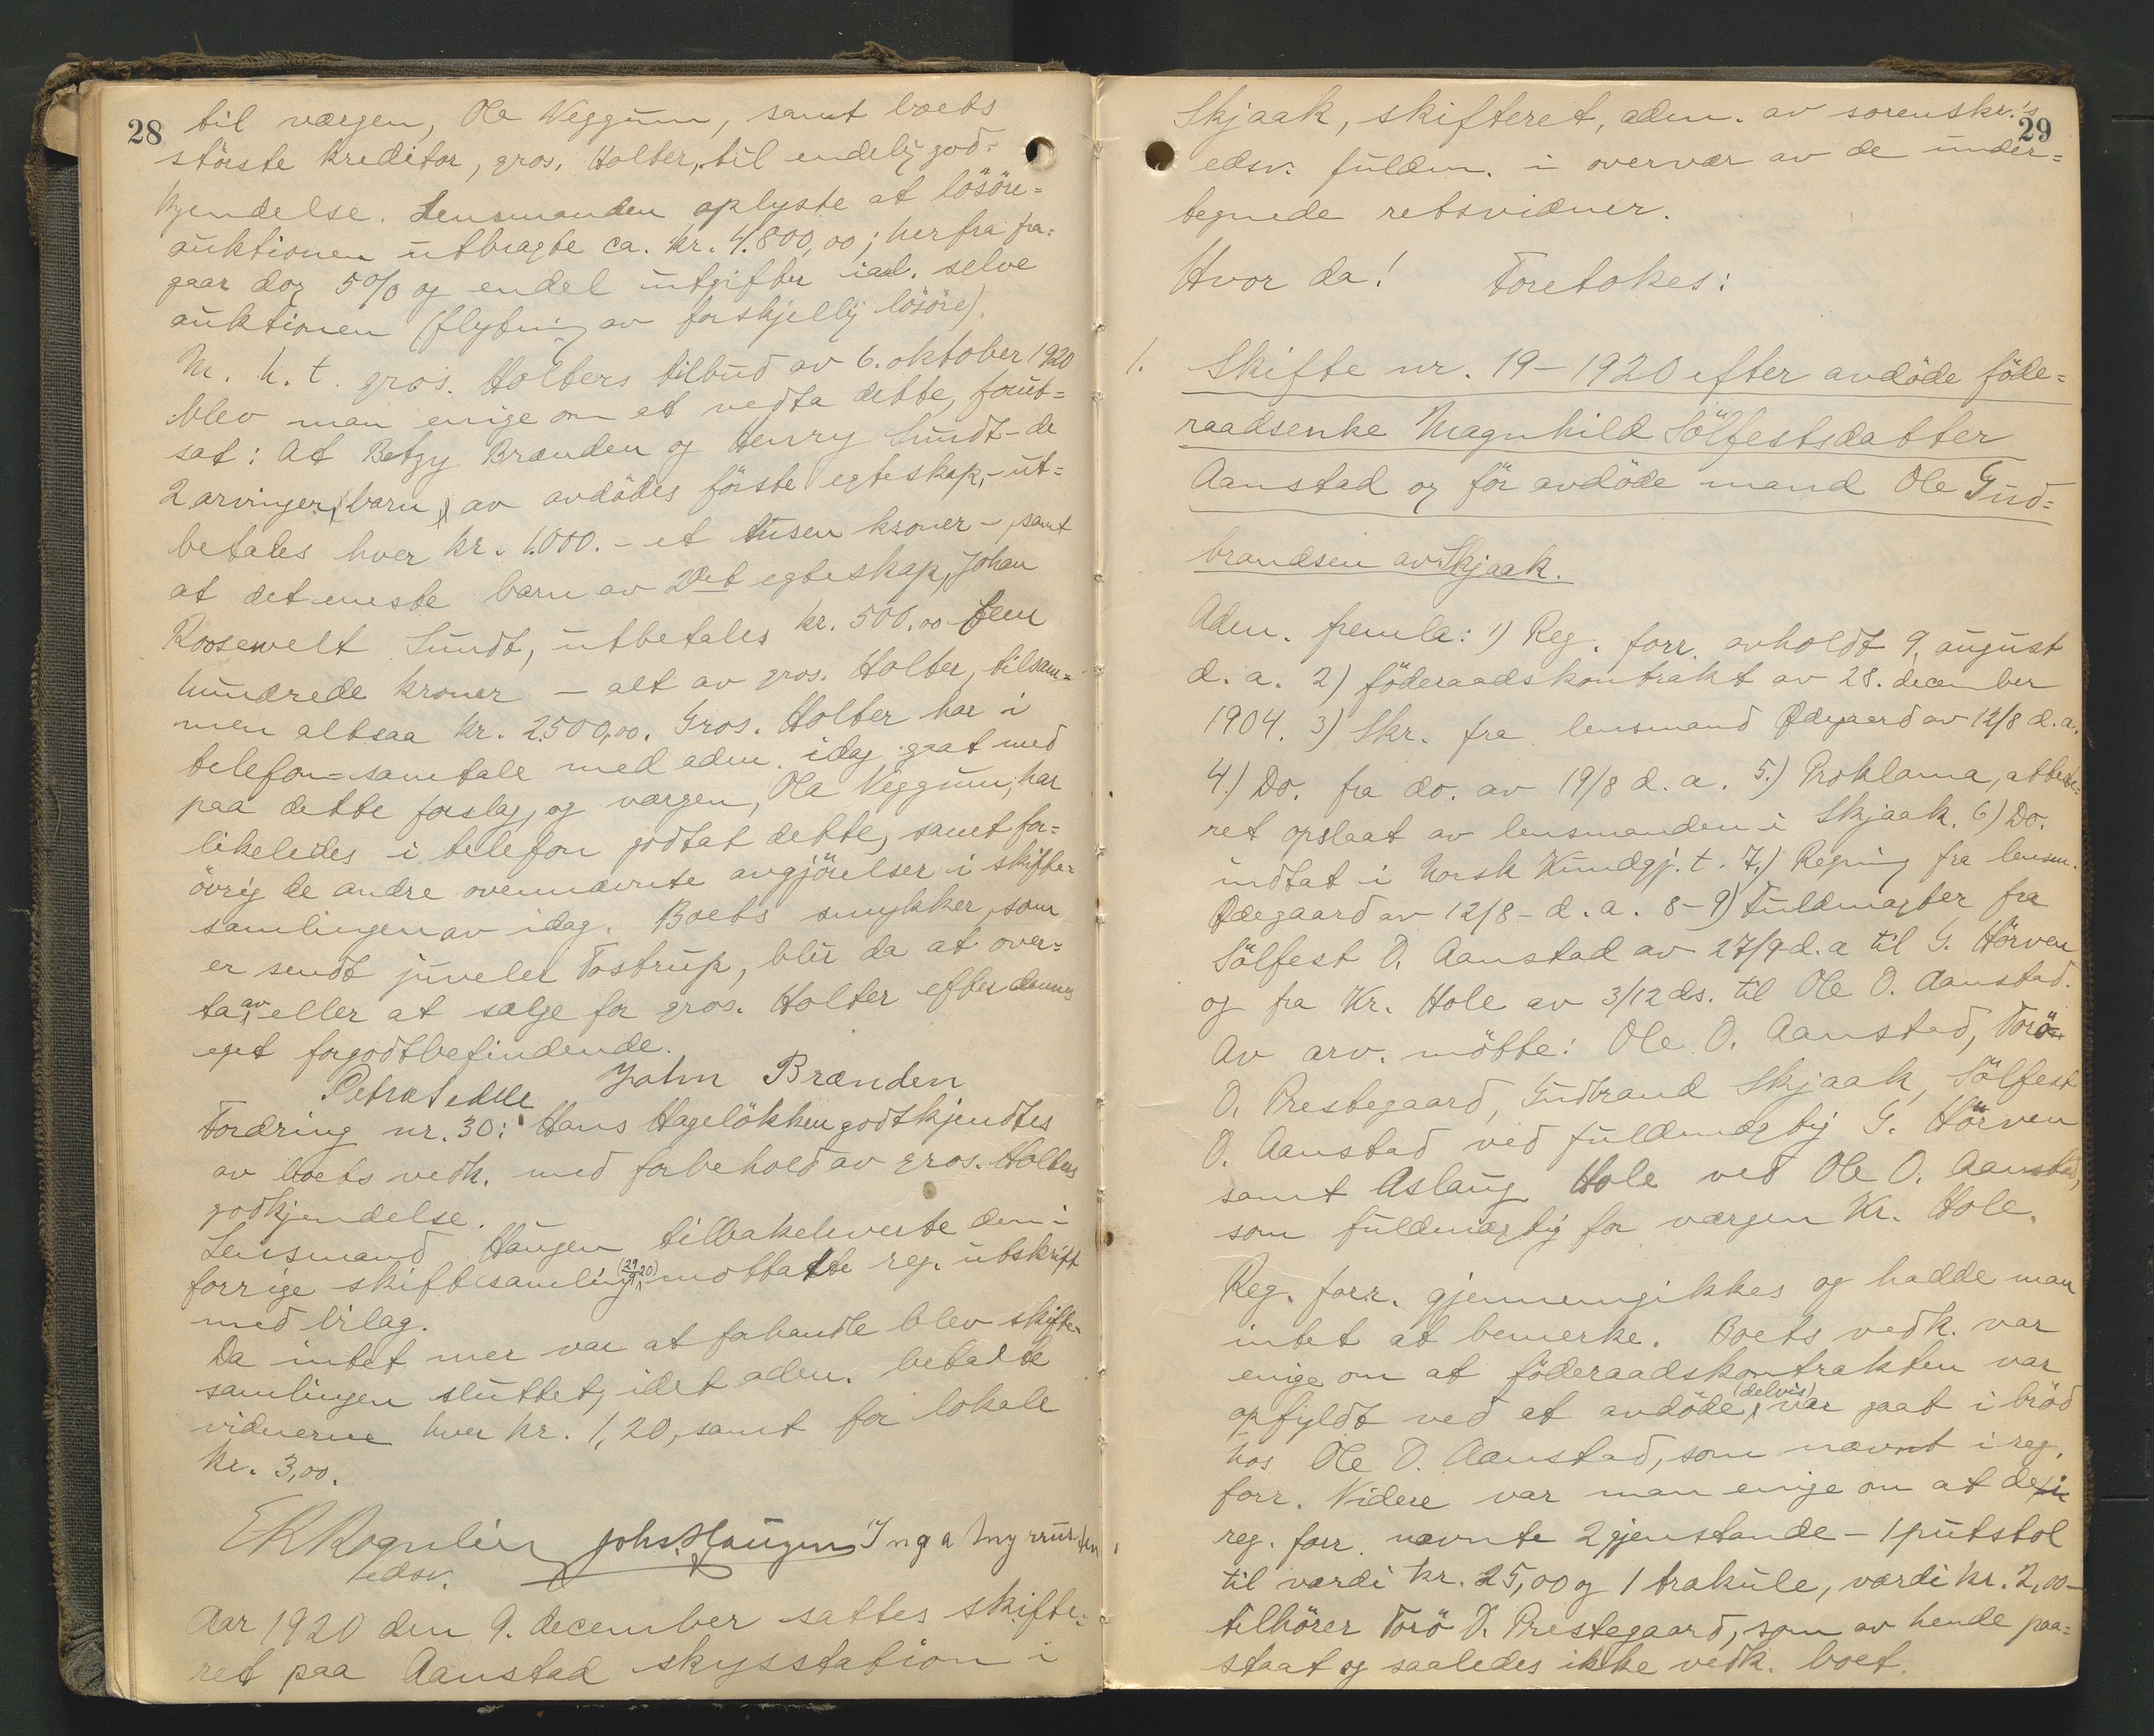 28
til værgen, Ola Veggum, samt boets
störste kreditor, gros. Holter, til endelig god=
kjendelse. Lensmanden oplyste at lösöre=
auktionen utbragte ca. kr. 4.800,00; herfra fra=
gaar dog 5% og endel utgifter ianl. selve
auktionen (flytning av forskjellig lösöre).
M. h. t. gros. Holters tilbud av 6. oktober 1920
blev man enige om et vedta dette, forut=
sat: At Betzy Brænden og Henry Sundt - de
2 arvinger, (barn) av avdödes förste egteskap, - ut=
betales hver kr. 1.000. - et tusen kroner - samt
at det eneste barn av 2det egteskap, Johan
Roosewelt Sundt, utbetales kr. 500.00 fem
hundrede kroner - alt av gros. Holter, tilsam=
men altsaa kr. 2.500,00. Gros. Holter har i
telefon=samtale med adm. idag gaat med
paa dette forslag, og værgen, Ola Veggum, har
likeledes i telefon godtat dette, samt for=
övrig de andre ovennævnte avgjörelser i skifte=
samlingen av idag. Boets smykker, som
er sendt juveler Tostrup, blir da at over=
ta av eller at sælge for gros. Holter efter dennes
eget forgodtbefindende.
John Brænden
Fordring nr. 30: Hans Hagelökken godtkjendtes
av boets vedk. med forbehold av gros. Holters
godkjendelse.
Lensmand Haugen tilbakeleverte den i
forrige skiftesamling (29/9 20) mottatte reg. utskrift
med bilag.
Da intet mer var at forhandle blev skifte=
samlingen sluttet, idet adm. betalte
vidnerne hver kr. 1,20, samt for lokale
kr. 3,00.
Johs. Haugen Inga
edsv.
Aar 1920 den 9. december sattes skifte=
ret paa Aanstad skysstation i
29
Skjaak, skifteret, adm. av sorenskr.'s
edsv. fuldm. i overvær av de under=
tegnede retsvidner.
Hvor da! Foretokes:
1. Skifte nr. 19 - 1920 efter avdöde föde=
raadsenke Magnhild Sölfestsdatter
Aanstad og för avdöde mand Ole Gud=
brandsen av Skjaak.
Adm. fremla: 1) Reg. forr. avholdt 9. august
d. a. 2) föderaadskontrakt av 28. december
1904. 3) Skr. fra lensmand Ødegaard av 12/8 d. a.
4.) Do. fra do. av 19/8 d. a. 5.) Proklama, atteste=
ret opslaat av lensmanden i Skjaak. 6) Do.
indtat i Norsk Kundgj. t. 7.) Regning fra lensm.
Ødegaard av 12/8 - d. a. 8 - 9) Fuldmagter fra
Sölfest O. Aanstad av 27/9 d. a til G. Hörven
og fra Kr. Hole av 3/12 ds. til Ole O. Aanstad.
Av arv. mötte: Ole O. Aanstad, Torö
O. Prestegaard, Gudbrand Skjaak, Sölfest
O. Aanstad ved fuldmægtig G. Hörven
samt Aslaug Hole ved Ole O. Aanstad,
som fuldmægtig for værgen Kr. Hole.
Reg. forr. gjennemgikkes og hadde man
intet at bemerke. Boets vedk. var
enige om at föderaadskontrakten var
opfyldt ved at avdöde (delvis) var gaat i bröd
hos Ole O. Aanstad, som nævnt i reg.
forr. Videre var man enige om at de i
reg. forr. nævnte 2 gjenstande - 1 putstol
til værdi kr. 25,00 og 1 trakule, værdi kr. 2,00 -
tilhörer Torö O. Prestegaard, som av hende paa=
staat og saaledes ikke vedk. boet.